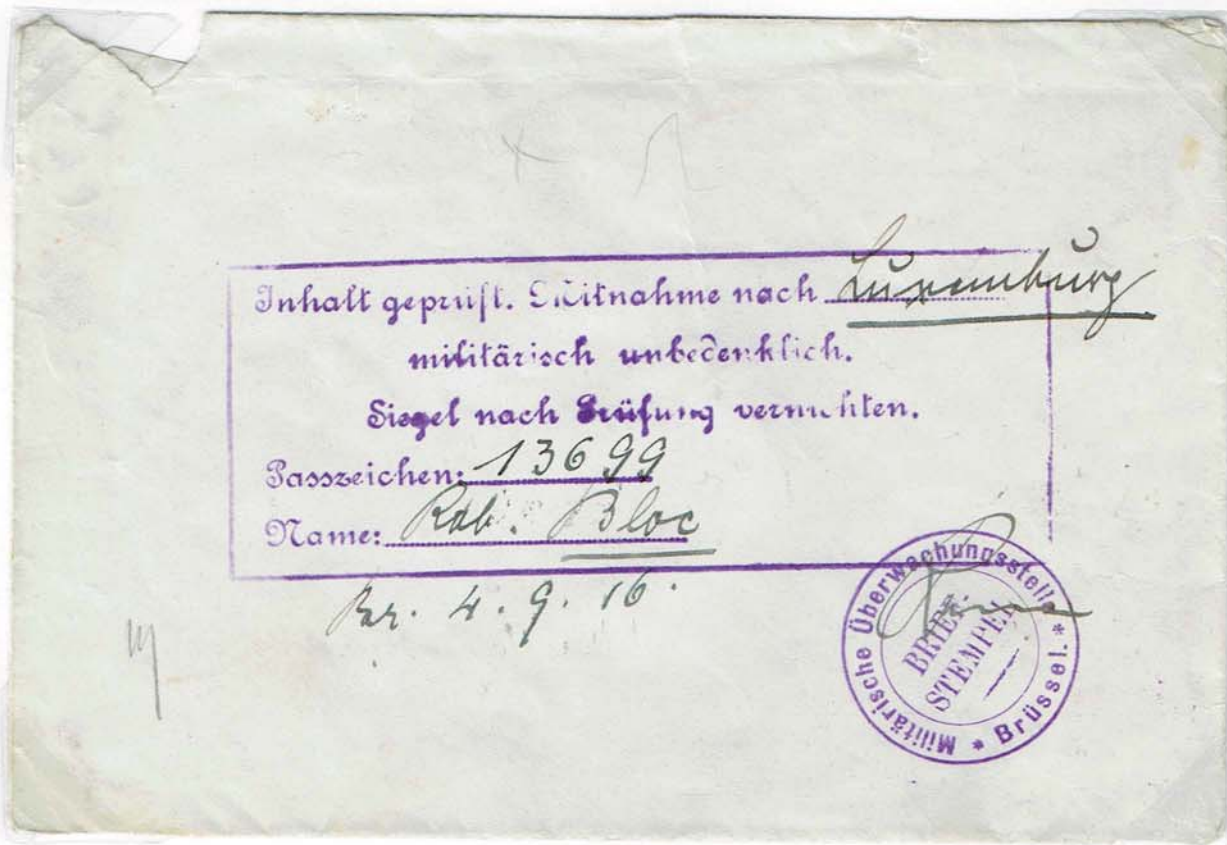 Inhalt geprüft. Mitnahme nach Luxemburg
militärisch unbedenklich.
Siegel nach Prüfung vernichten.
Passzeichen: 13699
Name: Rob. Bloc
Br. 4. 9. 16.
Militärische Überwachungsstelle * Brüssel. *
BRIEF-
STEMPEL